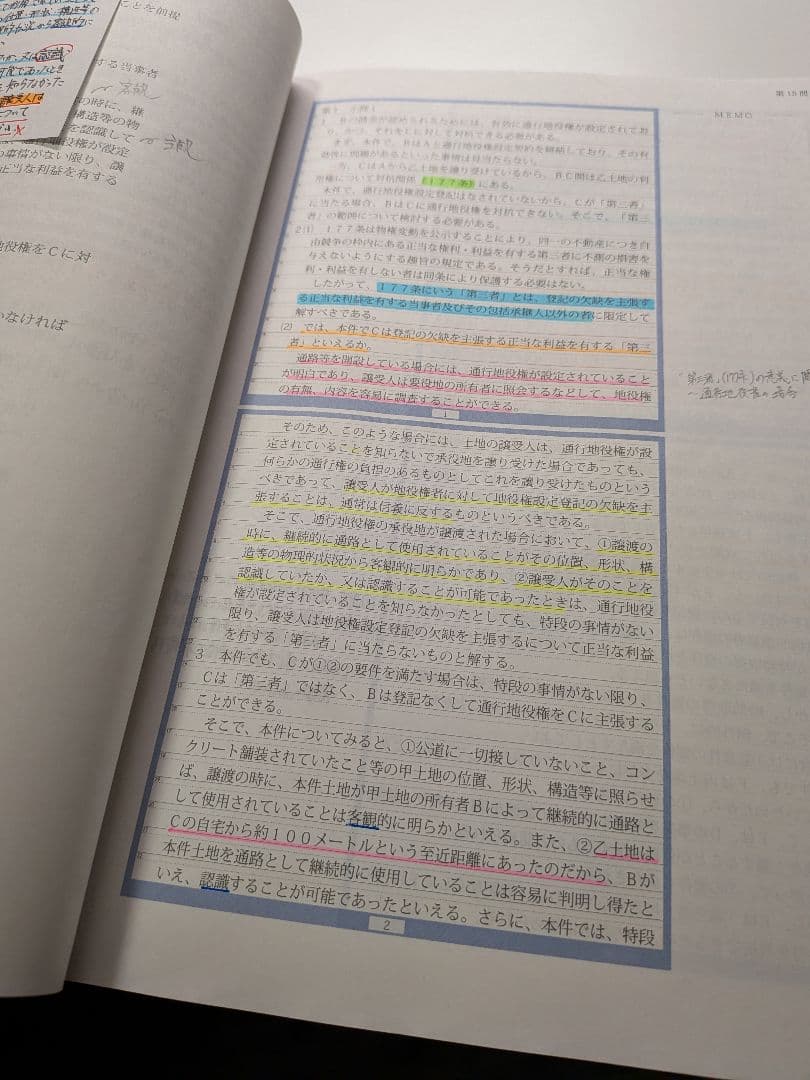 ことを前提
する当事者
客観
の時に、継
構造等の物
を認識して
地役権が設定
の事情がない限り、譲
正当な利益を有する
地役権をCに対
いなければ
認識
譲受人は
第15問
MEMO
第1 小問1
1 Bの請求が認められるためには、有効に通行地役権が設定されてお
り、かつ、それをCに対して対抗できる必要がある。
まず、本件で、BはAと通行地役権設定契約を締結しており、その有
効性に問題があるといった事情は見当たらない。
CはAから乙土地を譲り受けているから、BC間は乙土地の利
用権について対抗関係（177条）にある。
本件で、通行地役権設定登記はなされていないから、Cが「第三者」
に当たる場合、BはCに通行地役権を対抗できない。そこで、「第三
者」の範囲について検討する必要がある。
2(1) 177条は物権変動を公示することにより、同一の不動産につき自
由競争の枠内にある正当な権利・利益を有する第三者に不測の損害を
与えないようにする趣旨の規定である。そうだとすれば、正当な権
利・利益を有しない者は同条により保護する必要はない。
したがって、177条にいう「第三者」とは、登記の欠缺を主張す
る正当な利益を有する当事者及びその包括承継人以外の者に限定して
解すべきである。
(2) では、本件でCは登記の欠缺を主張する正当な利益を有する「第三
者」といえるか。
通路等を開設している場合には、通行地役権が設定されていること
が明白であり、譲受人は要役地の所有者に照会するなどして、地役権
の有無、内容を容易に調査することができる。
1
そのため、このような場合には、土地の譲受人は、通行地役権が設
定されていることを知らないで承役地を譲り受けた場合であっても、
何らかの通行権の負担のあるものとしてこれを譲り受けたものという
べきであって、譲受人が地役権者に対して地役権設定登記の欠缺を主
張することは、通常は信義に反するものというべきである。
そこで、通行地役権の承役地が譲渡された場合において、①譲渡の
時に、継続的に通路として使用されていることがその位置、形状、構
造等の物理的状況から客観的に明らかであり、②譲受人がそのことを
認識していたか、又は認識することが可能であったときは、通行地役
権が設定されていることを知らなかったとしても、特段の事情がない
限り、譲受人は地役権設定登記の欠缺を主張するについて正当な利益
を有する「第三者」に当たらないものと解する。
3 本件でも、Cが①②の要件を満たす場合は、特段の事情がない限り、
Cは「第三者」ではなく、Bは登記なくして通行地役権をCに主張する
ことができる。
そこで、本件についてみると、①公道に一切接していないこと、コン
クリート舗装されていたこと等の甲土地の位置、形状、構造等に照らせ
ば、譲渡の時に、本件土地が甲土地の所有者Bによって継続的に通路と
して使用されていることは客観的に明らかといえる。また、②乙土地は
Cの自宅から約100メートルという至近距離にあったのだから、Bが
本件土地を通路として継続的に使用していることは容易に判明し得たと
いえ、認識することが可能であったといえる。さらに、本件では、特段
2
「第三者」(177条)の意義に
〜通行地役権の場合